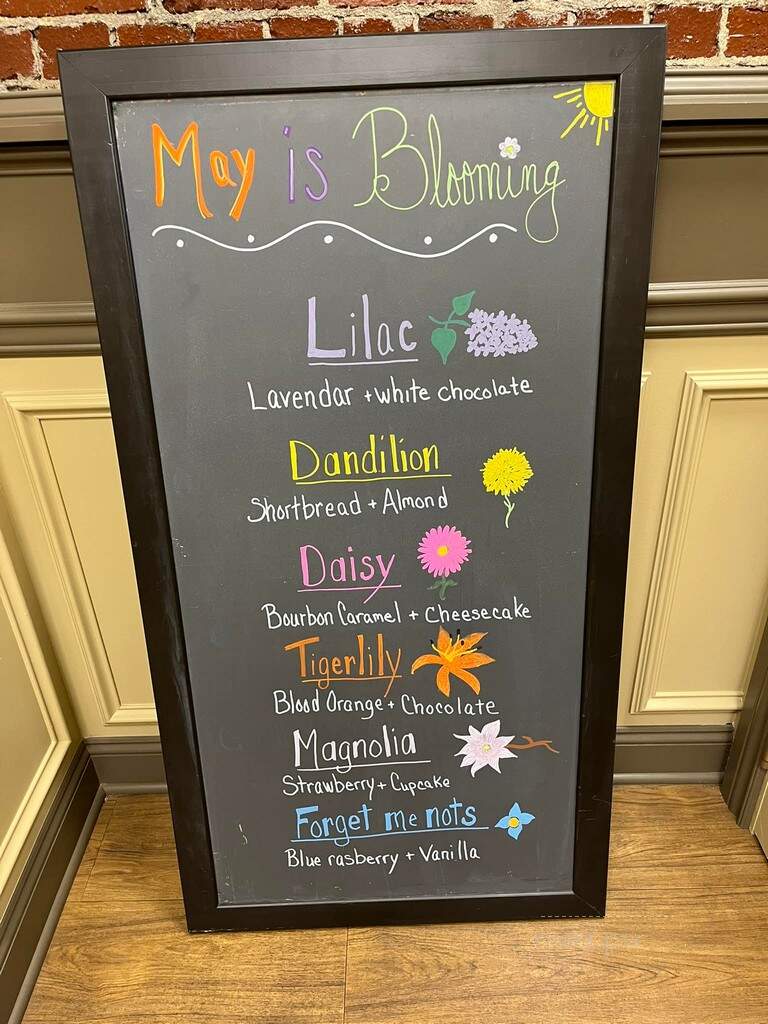 May is Blooming
Lilac
Lavendar + white chocolate
Dandilion
Shortbread + Almond
Daisy
Bourbon Caramel + Cheesecake
Tigerlily
Blood Orange + Chocolate
Magnolia
Strawberry + Cupcake
Forget me nots
Blue rasberry + Vanilla